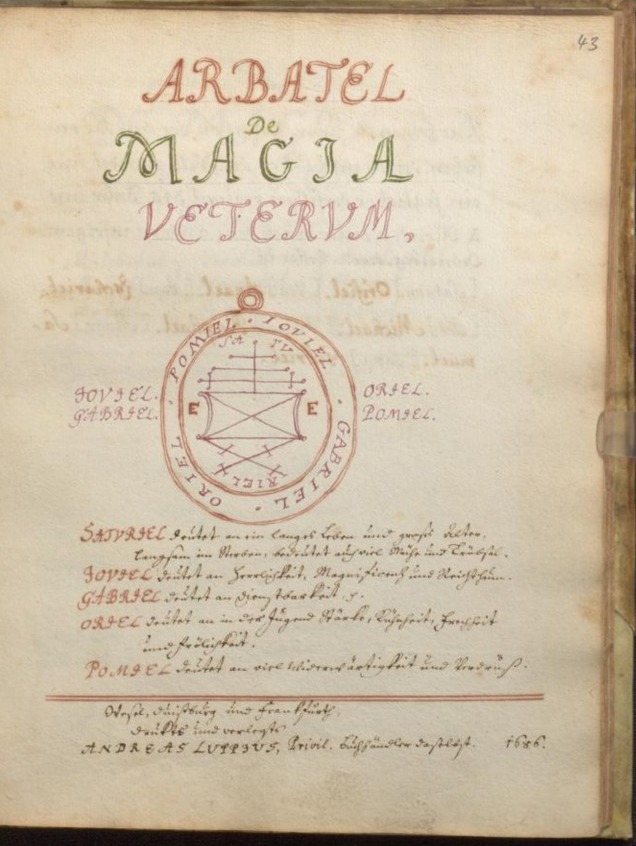 43
ARBATEL
De
MAGIA
VETERVM,
POMIEL · IOVIEL · GABRIEL · ORIEL ·
SA TV
E E
RIEL
JOVIEL.
GABRIEL.
ORIEL.
POMIEL.
SATVRIEL deutet an ein langes Leben und groß Alter,
langsam im Sterben, bedeutet auch viel Mühe und Trübsal.
JOVIEL deutet an Herrlichkeit, Magnificentz und Reichthum.
GABRIEL deutet an Dienstbarkeit
ORIEL deutet an in der Jugend Stärke, Kühnheit, Frechheit
und Frölichkeit.
POMIEL deutet an viel Widerwärtigkeit und Verdruß.
Wesel, Duißburg und Franckfurth,
druckts und verlegts
ANDREAS LUPPIVS, Privil. Buchhändler daselbst. 1686.